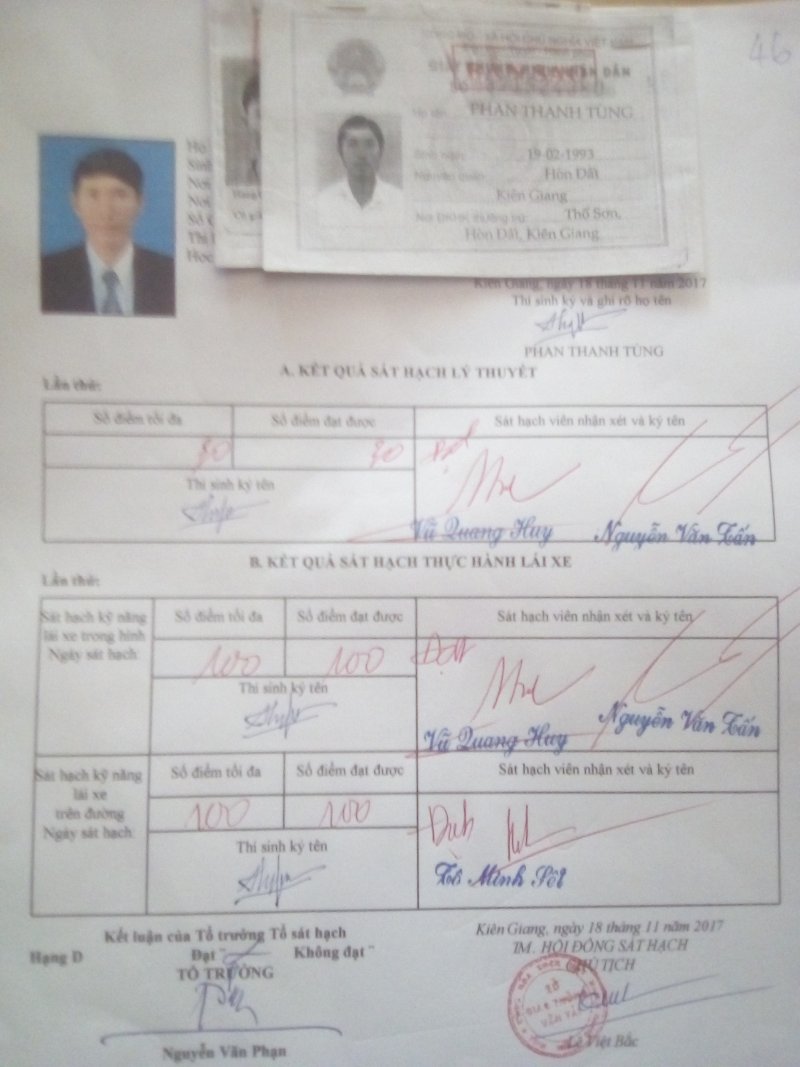 46
CỘNG HÒA XÃ HỘI CHỦ NGHĨA VIỆT NAM
DÂN
PHAN THANH TÙNG
19-02-1993
Nguyên quán Hòn Đất
Kiên Giang
Nơi ĐKHK thường trú Thổ Sơn,
Hòn Đất, Kiên Giang
Họ
Sinh
Nơi
Nơi
Số
Kiên Giang, ngày 18 tháng 11 năm 2017
Thí sinh ký và ghi rõ họ tên
PHAN THANH TÙNG
A. KẾT QUẢ SÁT HẠCH LÝ THUYẾT
Lần thứ:
Số điểm tối đa Số điểm đạt được Sát hạch viên nhận xét và ký tên
30 30
Thí sinh ký tên
Vũ Quang Huy Nguyễn Văn Tấn
B. KẾT QUẢ SÁT HẠCH THỰC HÀNH LÁI XE
Lần thứ:
Sát hạch kỹ năng lái xe trong hình Ngày sát hạch
Số điểm tối đa Số điểm đạt được Sát hạch viên nhận xét và ký tên
100 100 Đạt
Thí sinh ký tên
Vũ Quang Huy Nguyễn Văn Tấn
Sát hạch kỹ năng lái xe trên đường Ngày sát hạch
Số điểm tối đa Số điểm đạt được Sát hạch viên nhận xét và ký tên
100 100
Thí sinh ký tên
Tô Minh
Kết luận của Tổ trưởng Tổ sát hạch
Hạng D Đạt Không đạt
TỔ TRƯỞNG
Nguyễn Văn Phạn
Kiên Giang, ngày 18 tháng 11 năm 2017
TM. HỘI ĐỒNG SÁT HẠCH
CHỦ TỊCH
SỞ
GIAO THÔNG
VẬN TẢI
Lê Việt Bắc